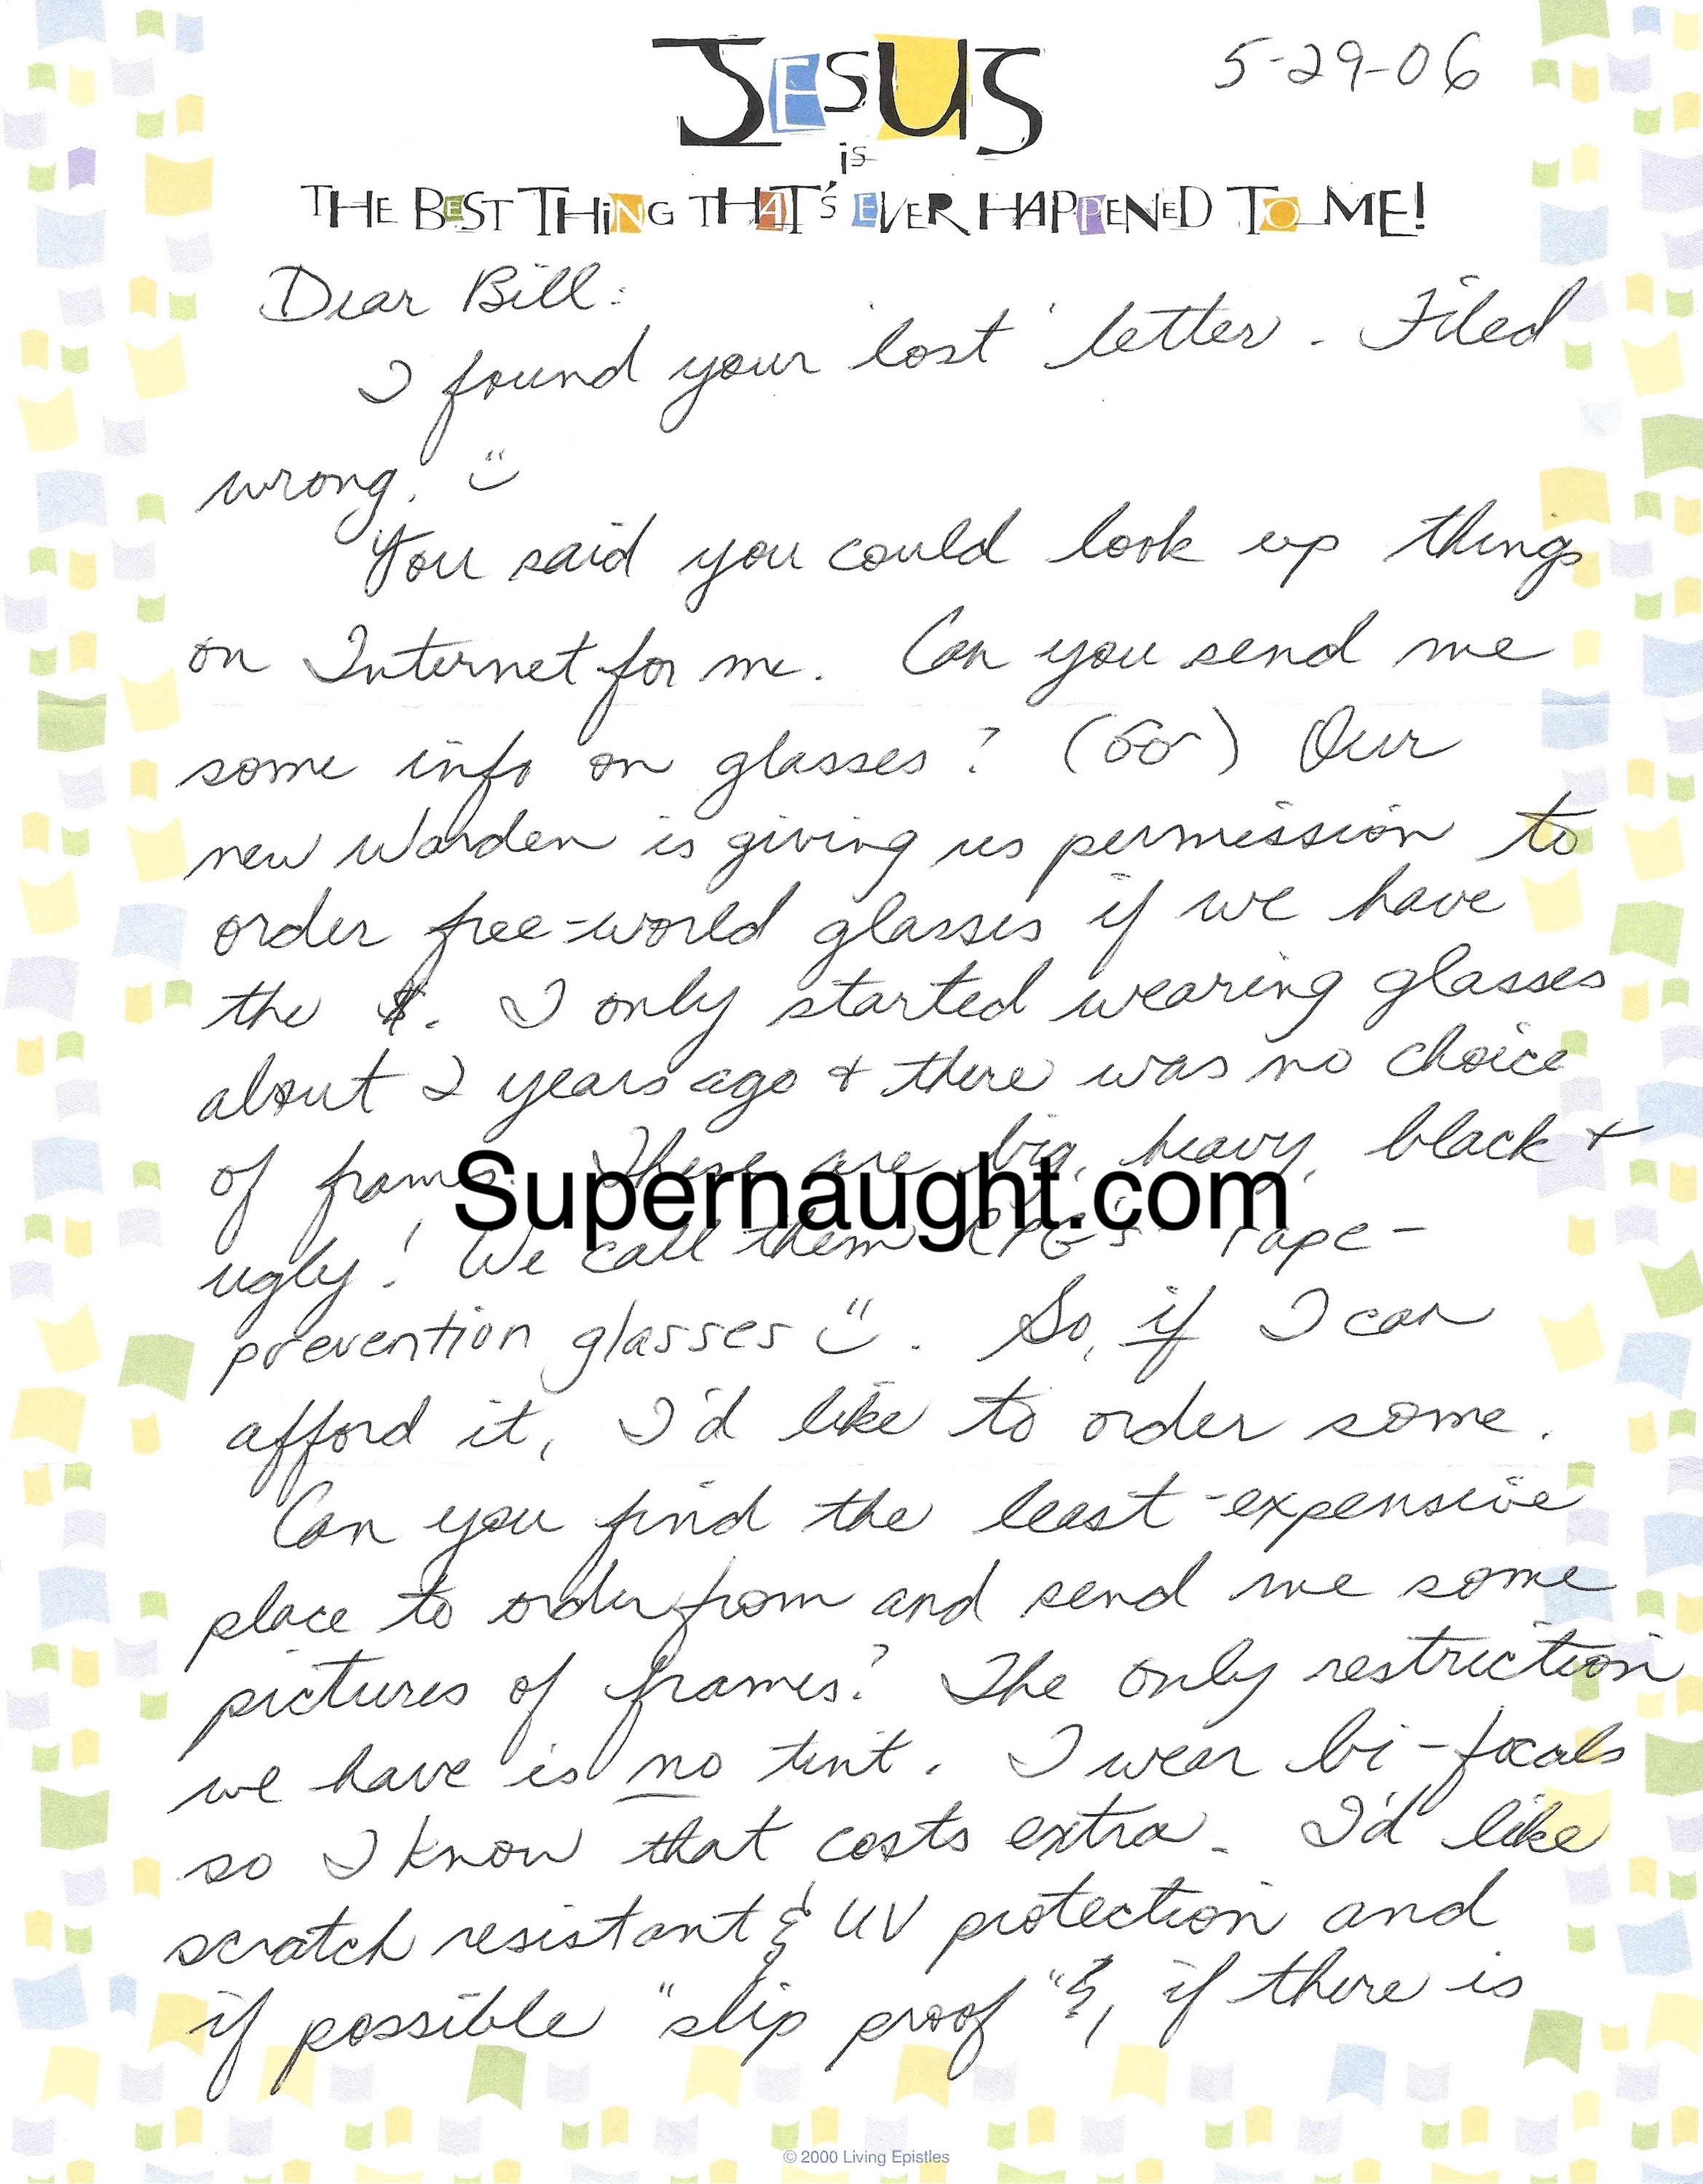 5-29-06
JESUS
is
THE BEST THING THAT'S EVER HAPPENED TO ME!
Dear Bill:
I found your 'lost' letter. Filed
wrong. ü
You said you could look up things
on Internet for me. Can you send me
some info on glasses? (oo) Our
new Warden is giving us permission to
order free-world glasses if we have
the $. I only started wearing glasses
about 2 years ago & there was no choice
of frames. These are big, heavy, black +
Supernaught.com
ugly! We call them RPG's rape-
prevention glasses ü. So, if I can
afford it, I'd like to order some.
Can you find the least-expensive
place to order from and send me some
pictures of frames? The only restriction
we have is no tint. I wear bi-focals
so I know that costs extra. I'd like
scratch resistant & UV protection and
if possible "slip proof" &, if there is
© 2000 Living Epistles